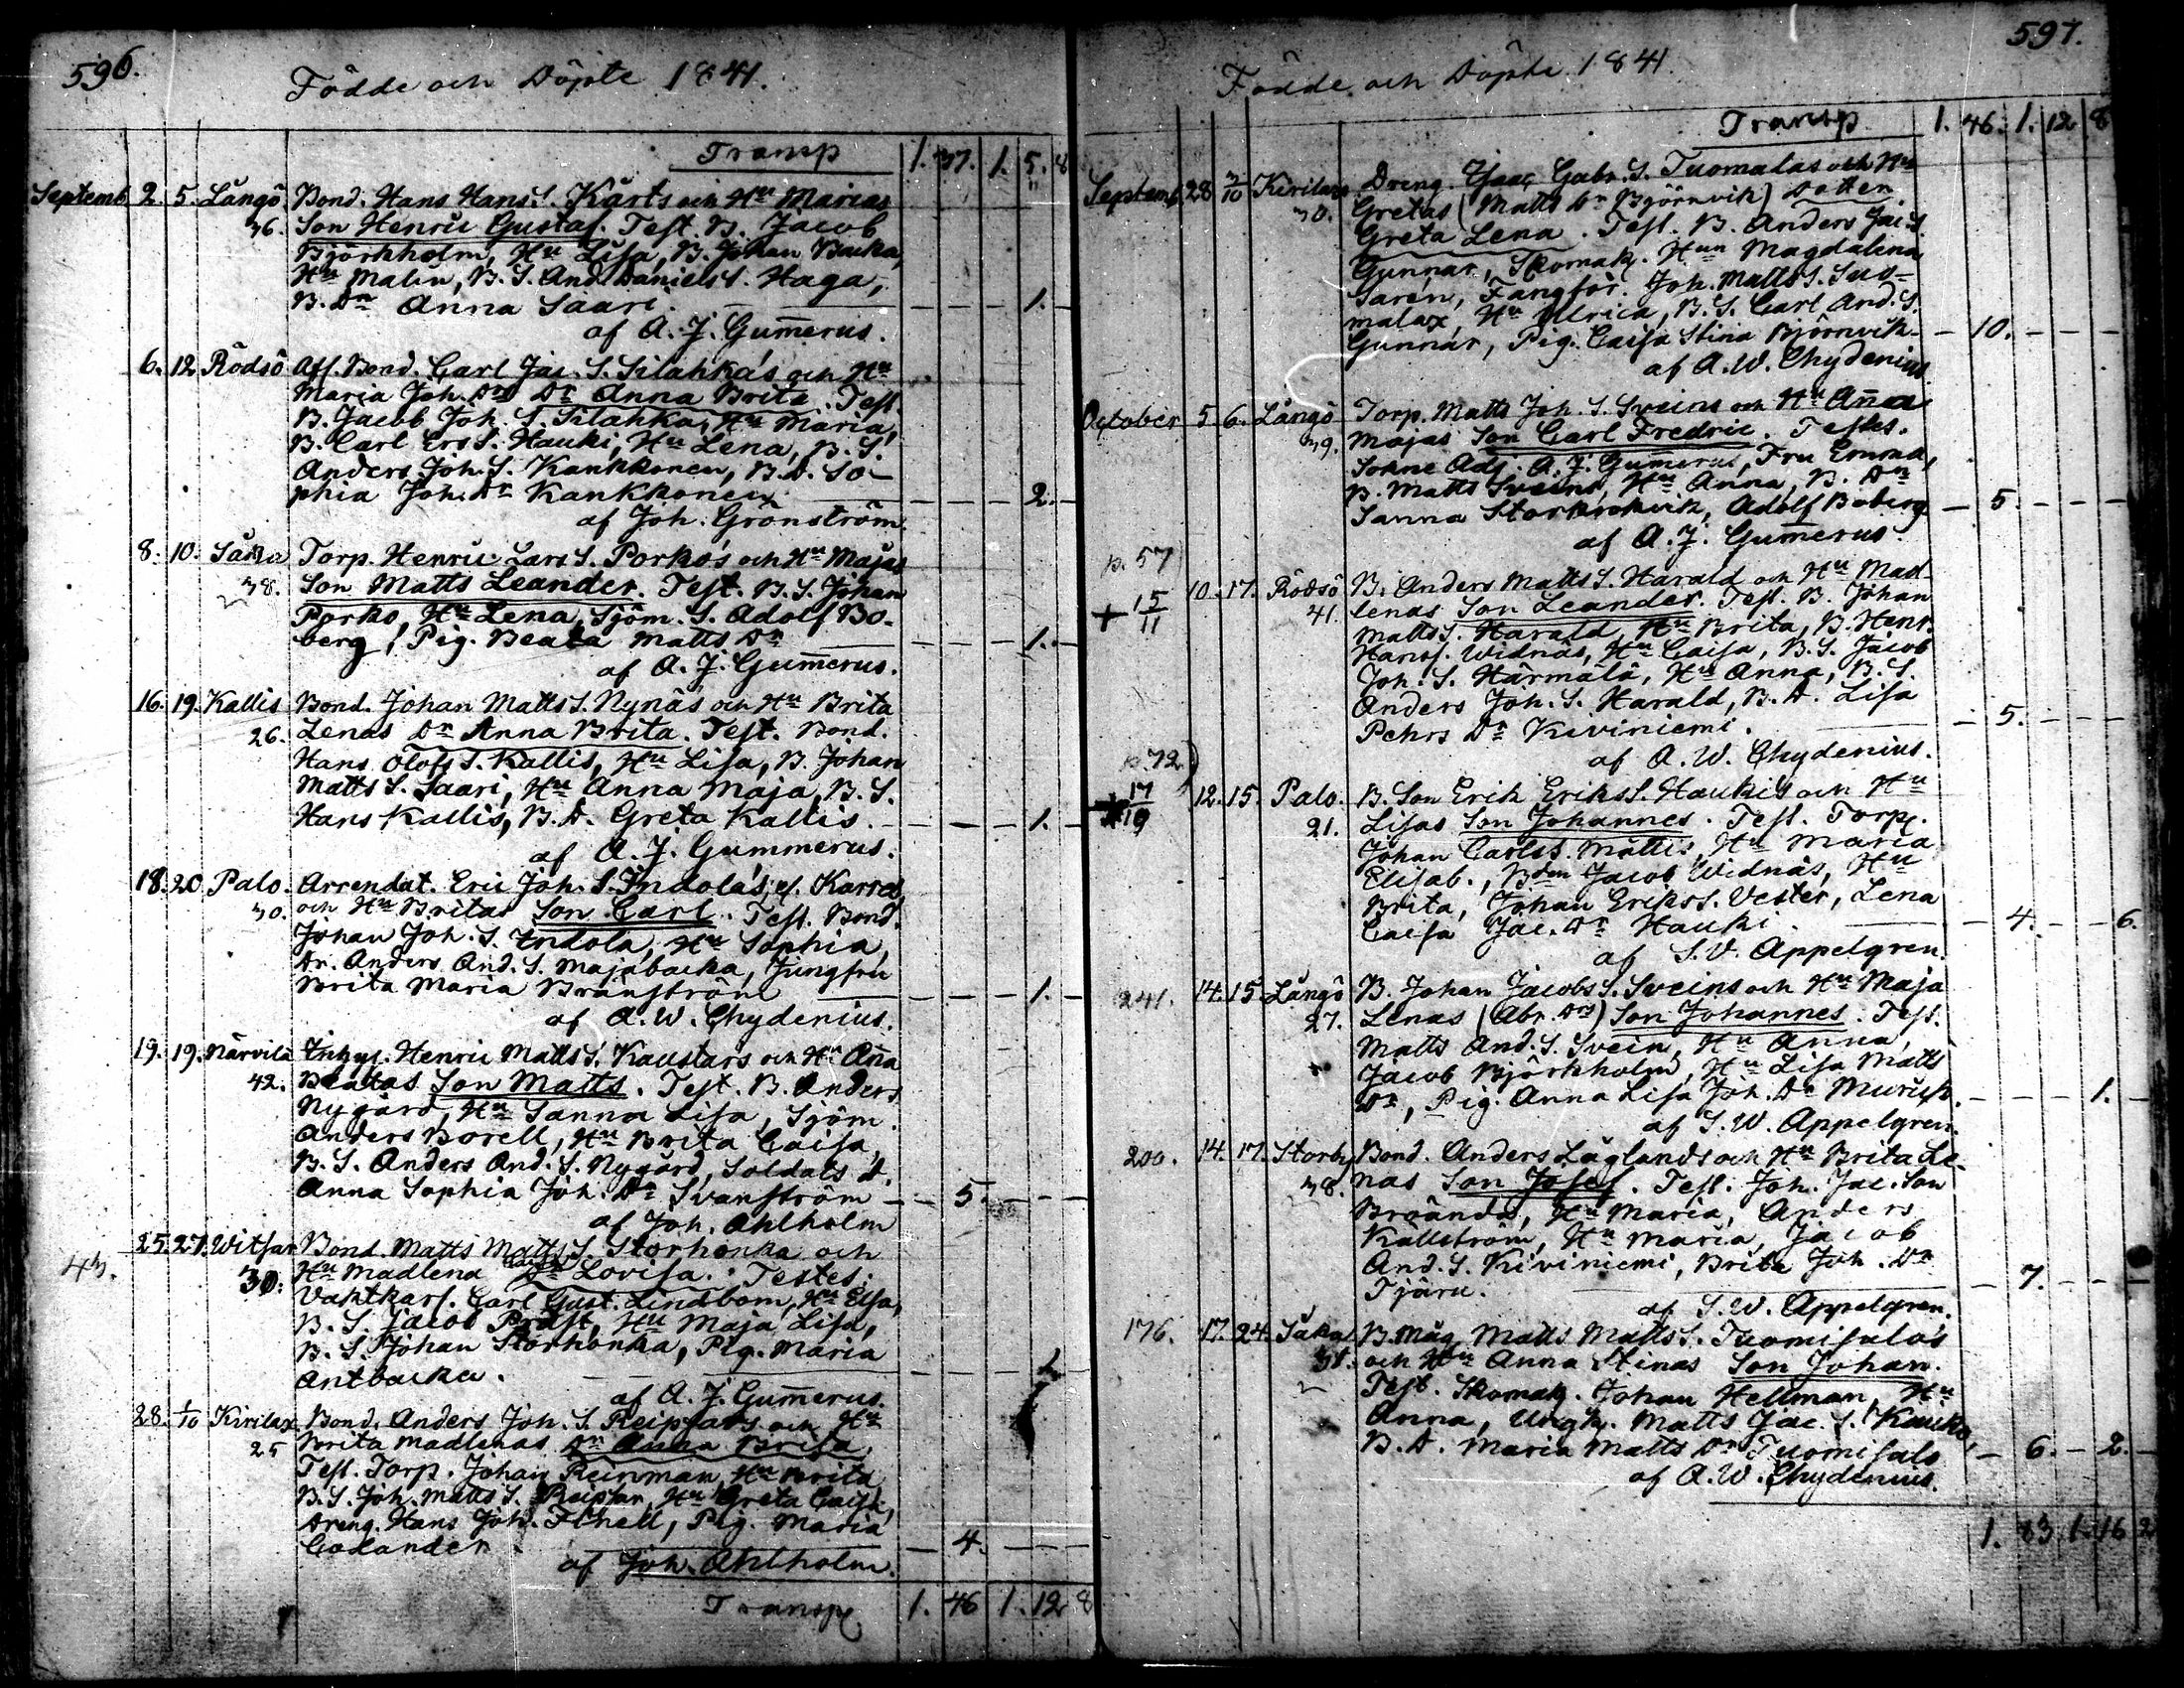 596.
Födde och Döpte 1841.
Transp 1. 37. 1. 5. 8
Septemb. 2. 5. Långö Bond. Hans Hans S. Kårts och Hu Marias
36. Son Henric Gustaf. Test. B. Jacob
Björkholm, Hu Lisa, B. Johan Backa,
Hu Malin, B. S. And. Daniels S. Haga,
B. Dr Anna Saari. — — — 1. —
af A. J. Gum̅erus.
6. 12 Rödsö Aff. Bond. Carl Jac. S. Silahka's och Hu
Maria Joh. Drs Dr Anna Brita. Test.
B. Jacob Joh. S. Silahka, Hu Maria,
B. Carl Ers S. Hauki, Hu Lena, B. S.
Anders Joh. S. Kankkonen, B. D. So-
phia Joh. Dr Kankkonen. — — — 2. —
af Joh. Grönström.
8. 10. Såka Torp. Henric Lars S. Porko's och Hu Majas
38. Son Matts Leander. Test. B. S. Johan
Porko, Hu Lena, Sjöm. S. Adolf Bo-
berg, Pig. Beata Matts Dr — — — 1. —
af A. J. Gum̅erus.
16. 19. Kallis Bond. Johan Matts S. Nynäs och Hu Brita
26. Lenas Dr Anna Brita. Test. Bond.
Hans Olofs S. Kallis, Hu Lisa, B. Johan
Matts S. Saari, Hu Anna Maja, B. S.
Hans Kallis, B. D. Greta Kallis. — — — 1. —
af A. J. Gummerus.
18. 20. Palo. Arrendat. Eric Joh. S. Indola's, ef.
30. och Hu Britas Son Carl. Test. Bond.
Johan Joh. S. Indola, Hu Sophia,
Dr. Anders And. S. Majabacka, Jungfru
Brita Maria Brånström — — — 1. —
af A. W. Chydenius.
19. 19. Närvilä Inhys. Henric Matts S. Kaustars och Hu An̅a
42. Beatas Son Matts. Test. B. Anders
Nygård, Hu Sanna Lisa, Sjöm.
Anders Borell, Hu Brita Caisa,
B. S. Anders And. S. Nygård, Soldats D.
Anna Sophia Joh. Dr Svanström — — 5. — — —
af Joh. Ahlholm
43. 25. 27. Witsar Bond. Matts Matts S. Storhonka och
30. Hu Madlena Dr Lovisa. Testes:
Vaktkarl. Carl Gust. Lindbom, Hu Elsa,
B. S. Jacob Präst, Hu Maja Lisa,
B. S. Johan Storhonka, Pig. Maria
Antbacka. — — — 1
af A. J. Gum̅erus.
28. 1/10 Kirilax Bond. Anders Joh. S. Reipsars och Hu
25 Brita Madlenas Dr Anna Brita
Test. Torp. Johan Reinman, Hu Brita
B. S. Joh. Matts S. Reipsar, Hu Greta Caisa,
Dreng. Hans Joh. , Pig. Maria
— 4. — — —
af Joh. Ahlholm.
Transp. 1. 46 1. 12 8
597.
Födde och Döpte 1841.
Transp 1. 46. 1. 12 8
Septemb 28 3/10 Kirilax Dreng. Isaac Gabr. S. Tuomalas och Hu
30. Gretas (Matts Dr Björnvik) Dotter
Greta Lena. Test. B. Anders Jac. S.
Gunnar, Skomak. Hun Magdalena
Saren, Fangför. Joh. Matts S. Suo-
malax, Hu Ulrica, B. S. Carl And. S.
Gunnar, Pig. Caisa Stina Björnvik — 10. — — —
af A. W. Chydenius.
October 5 6. Långö Torp. Matts Joh. S. Sveins och Hu An̅a
39. Majas Son Carl Fredric. Testes.
Sokne Adj. A. J. Gum̅erus, Fru Emma,
B. Matts Sveins, Hu Anna, B. Dr
Sanna Storkrokvik, Adolf Boberg — 5. — — —
af A. J. Gum̅erus.
p. 57
+ 15/11 10. 17. Rödsö B. Anders Matts S. Harald och Hu Mad-
41. lenas Son Leander. Test. B. Johan
Matts S. Harald, Hu Brita, B. Henr.
Hans S. Widnäs, Hu Caisa, B. S. Jacob
Joh. S. Härmälä, Hu Anna, B. S.
Anders Joh. S. Harald, B. D. Lisa
Pehrs Dr Kiviniemi. — 5. — — —
af A. W. Chydenius.
p. 72
12. 15. Palo. B. Son Erik Eriks S. Hauki's och Hu
21. Lisas Son Johannes. Test. Torp.
Johan Carls S. Mattis, Hu Maria
Elisab., Bden Jacob Widnäs, Hu
Brita, Johan Eriks S. Vester, Lena
Caisa Jac. Dr Hauki. — 4. — — 6.
af S. V. Appelgren.
241. 14. 15. Långö B. Johan Jacobs S. Sveins och Hu Maja
27. Lenas (Abr. Drs) Son Johannes. Test.
Matts And. S. Svein, Hu Anna,
Jacob Björkholm, Hu Lisa Matts
Dr, Pig. Anna Lisa Joh. Dr Murick. — — — 1. —
af S. W. Appelgren.
200. 14. 17. Storby Bond. Anders Låglands och Hu Brita Le-
38. nas Son Josef. Test. Joh. Jac. Son
Brända, Hu Maria, Anders
Kallström, Hu Maria, Jacob
And. S. Kiviniemi, Brita Joh. Dr
Tjäru. — 7. — — —
af S. W. Appelgren.
176. 17. 24. Såka B. Måg Matts Matts S. Tuomisalo's
38. och Hu Anna Stinas Son Johan.
Test. Skomak. Johan Hellman, Hu
Anna, Ungk. Matts Jac. S. Kauko,
B. D. Maria Matts Dr Tuomisalo — 6. — 2. —
af A. W. Chydenius.
1. 83 1. 16 2